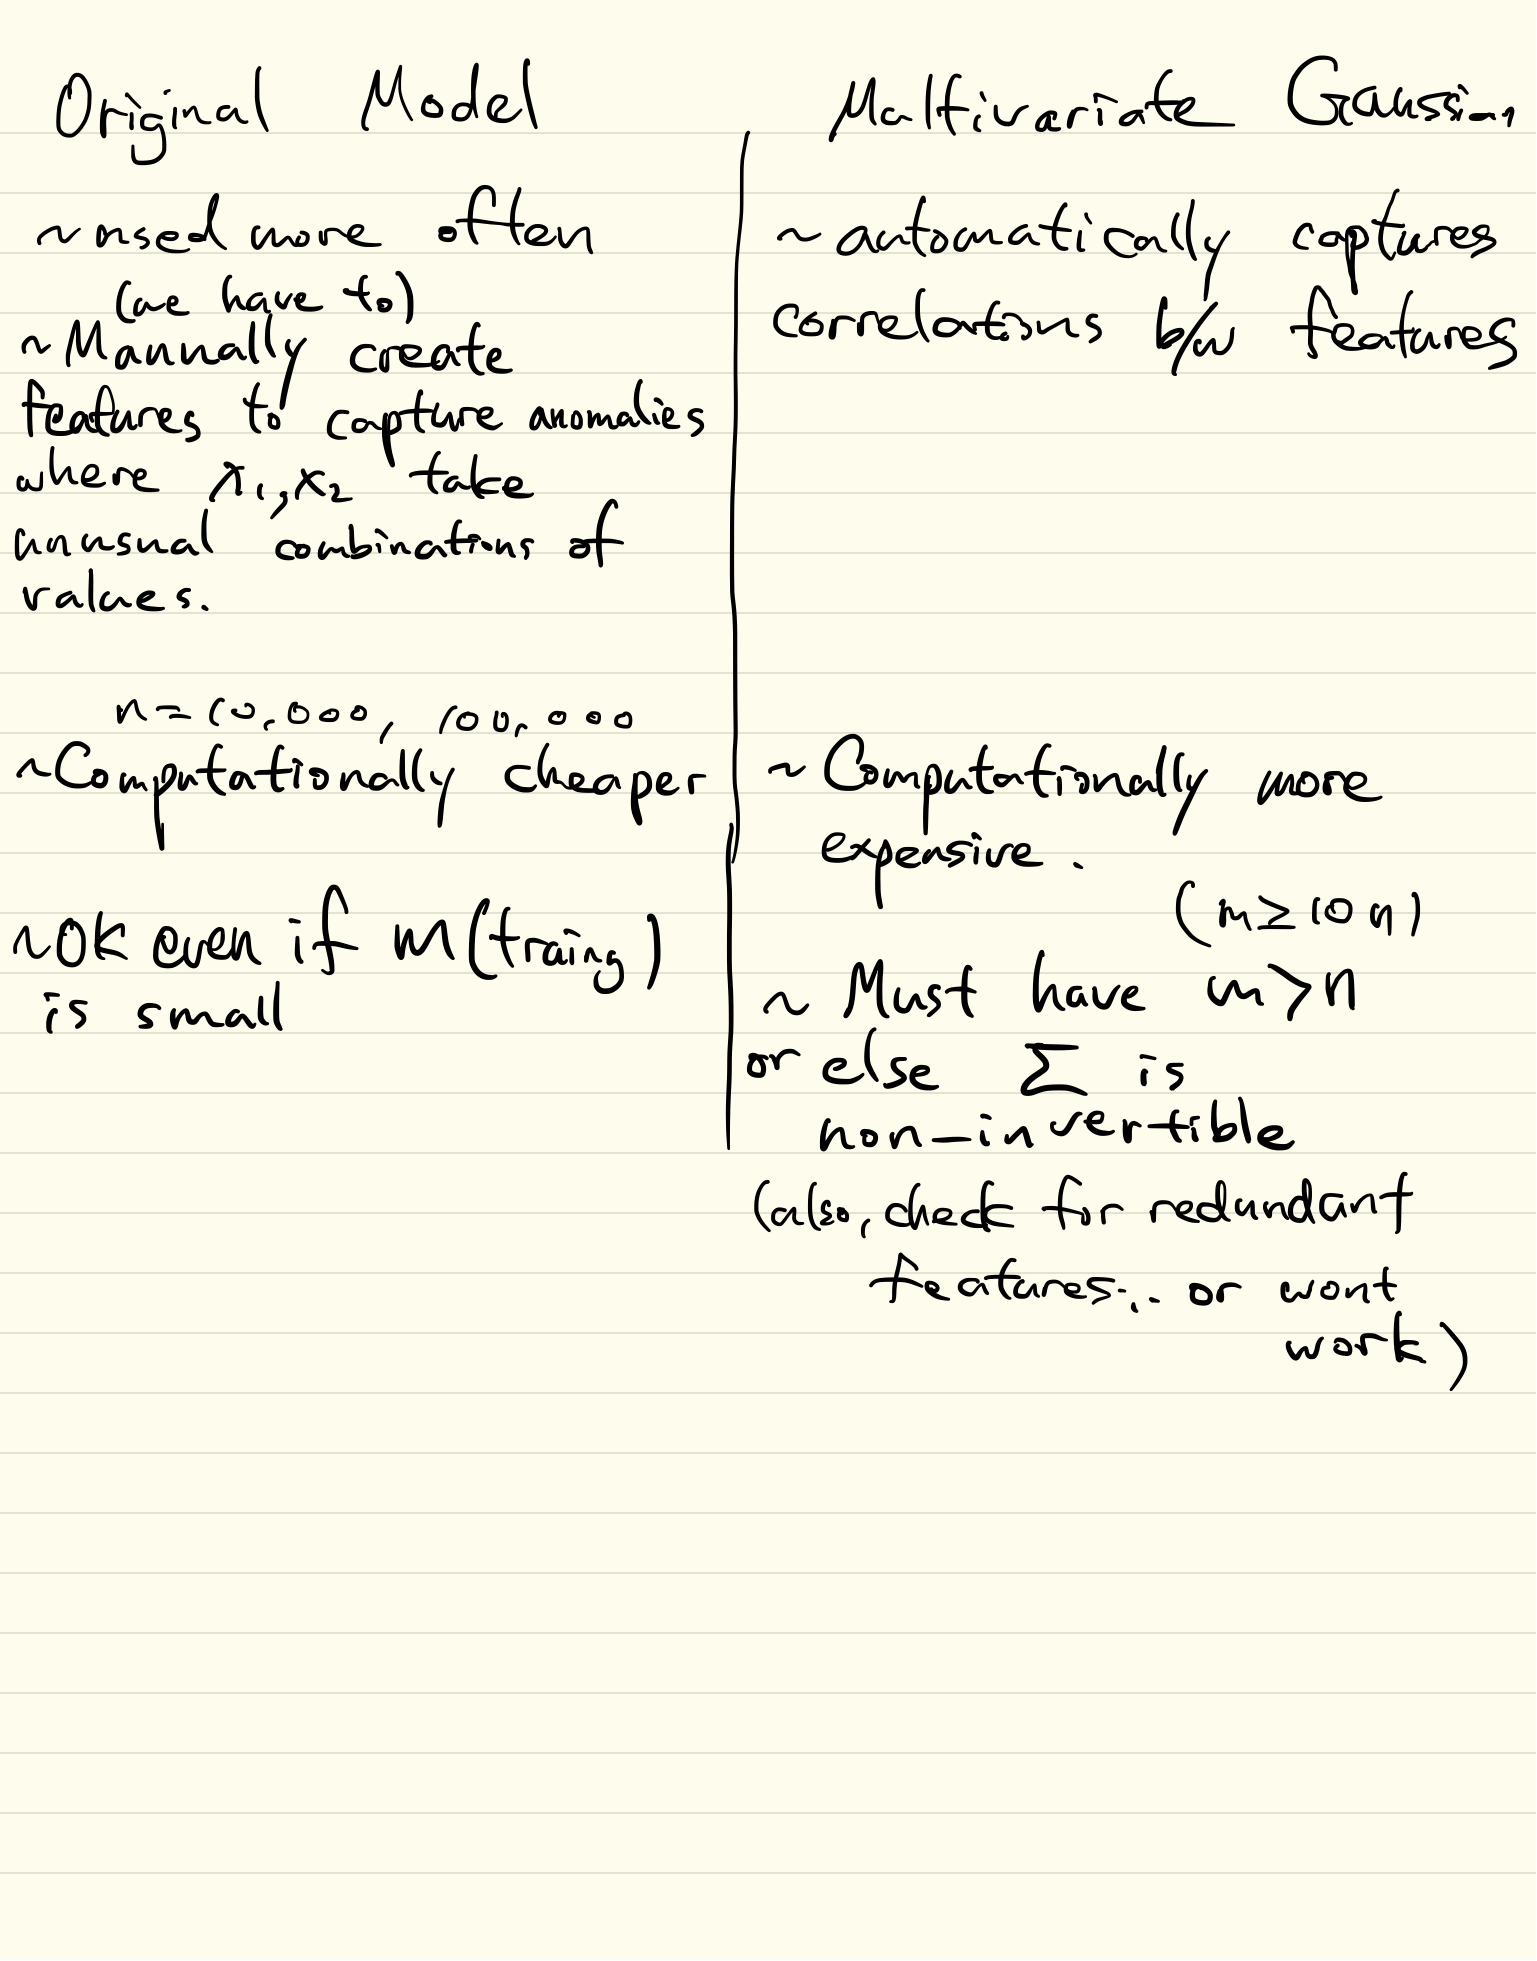 Original Model
~used more often
(we have to)
~Manually create
features to capture anomalies
where x₁,x₂ take
unusual combinations of
values.
n=10,000, 100,000
~Computationally cheaper
~OK even if m(traing)
is small
Multivariate Gaussian
~automatically captures
correlations b/w features
~ Computationally more
expensive.
(m≥10n)
~ Must have m>n
or else Σ is
non-invertible
(also, check for redundant
features... or wont
work)